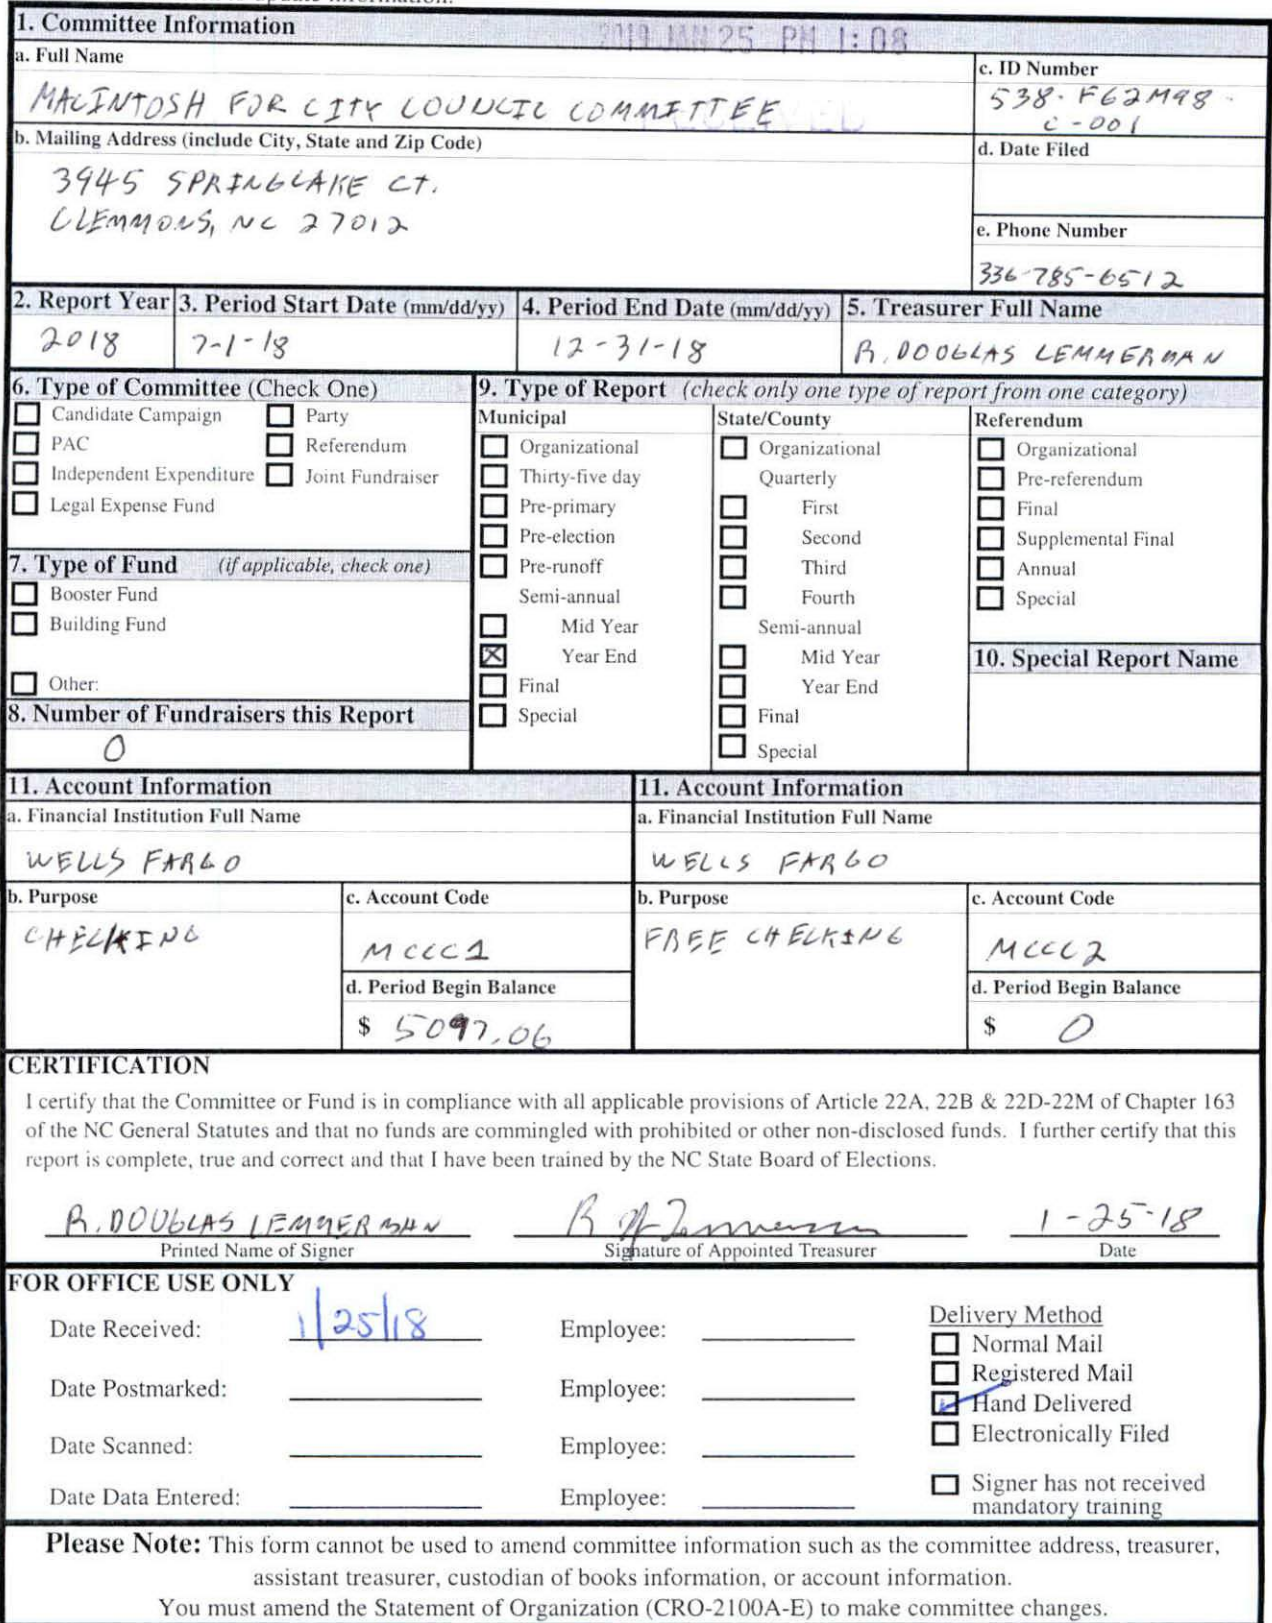 1. Committee Information
2019 JAN 25 PM 1:08
a. Full Name
MACINTOSH FOR CITY COUNCIL COMMITTEE
c. ID Number
538-F62M98-
C-001
b. Mailing Address (include City, State and Zip Code)
3945 SPRINGLAKE CT.
CLEMMONS, NC 27012
d. Date Filed
e. Phone Number
336-785-6512
2. Report Year 3. Period Start Date (mm/dd/yy) 4. Period End Date (mm/dd/yy) 5. Treasurer Full Name
2018 7-1-18 12-31-18 R. DOUGLAS LEMMERMAN
6. Type of Committee (Check One)
Candidate Campaign Party
PAC Referendum
Independent Expenditure Joint Fundraiser
Legal Expense Fund
7. Type of Fund (if applicable, check one)
Booster Fund
Building Fund
Other:
8. Number of Fundraisers this Report
0
9. Type of Report (check only one type of report from one category)
Municipal
Organizational
Thirty-five day
Pre-primary
Pre-election
Pre-runoff
Semi-annual
Mid Year
Year End
Final
Special
State/County
Organizational
Quarterly
First
Second
Third
Fourth
Semi-annual
Mid Year
Year End
Final
Special
Referendum
Organizational
Pre-referendum
Final
Supplemental Final
Annual
Special
10. Special Report Name
11. Account Information
a. Financial Institution Full Name
WELLS FARGO
b. Purpose
CHECKING
c. Account Code
MCCC1
d. Period Begin Balance
$ 5097.06
11. Account Information
a. Financial Institution Full Name
WELLS FARGO
b. Purpose
FREE CHECKING
c. Account Code
MCCC2
d. Period Begin Balance
$ 0
CERTIFICATION
I certify that the Committee or Fund is in compliance with all applicable provisions of Article 22A, 22B & 22D-22M of Chapter 163
of the NC General Statutes and that no funds are commingled with prohibited or other non-disclosed funds. I further certify that this
report is complete, true and correct and that I have been trained by the NC State Board of Elections.
R. DOUGLAS LEMMERMAN 1-25-18
Printed Name of Signer Signature of Appointed Treasurer Date
FOR OFFICE USE ONLY
Date Received: 1/25/18 Employee:
Date Postmarked: Employee:
Date Scanned: Employee:
Date Data Entered: Employee:
Delivery Method
Normal Mail
Registered Mail
Hand Delivered
Electronically Filed
Signer has not received
mandatory training
Please Note: This form cannot be used to amend committee information such as the committee address, treasurer,
assistant treasurer, custodian of books information, or account information.
You must amend the Statement of Organization (CRO-2100A-E) to make committee changes.